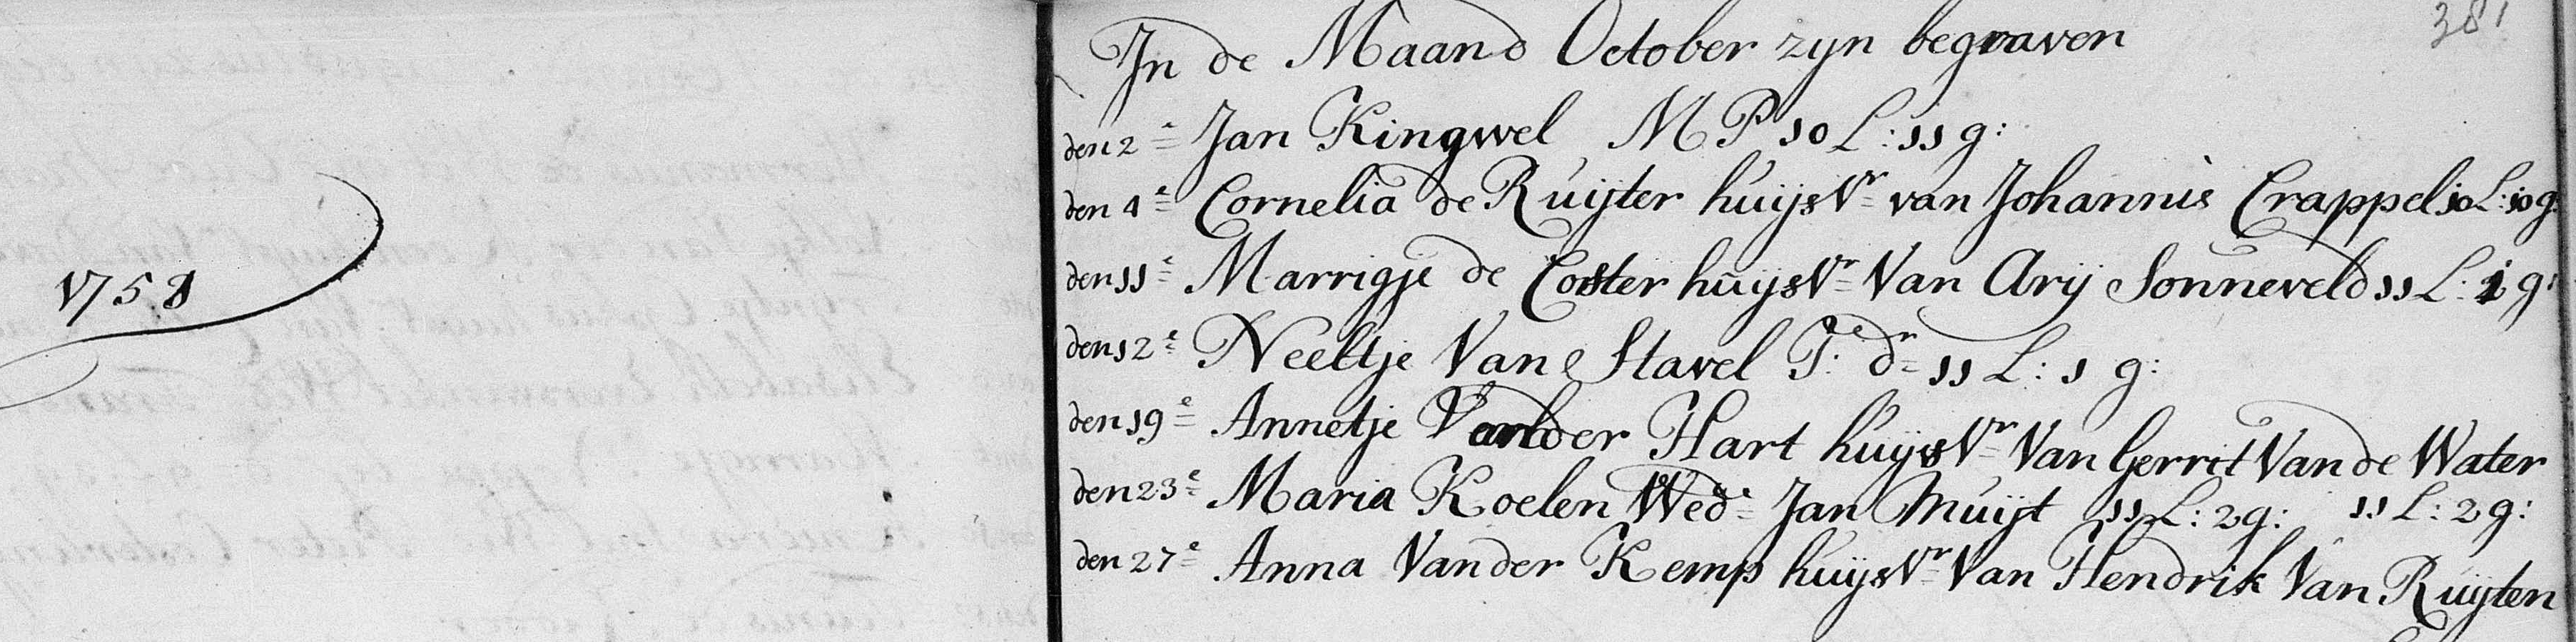 381
In de Maand October zyn begraven
den 2e Jan Kingwel M P 10 L: 11 g:
den 4e Cornelia de Ruijter huijsVr van Johannis Crappel 10 L: 10 g:
den 11e Marrigje de Coster huijsVr Van Arij Sonneveld 11 L: 1 g:
1758
den 12e Neeltje Van Stavel J: dr 11 L: 1 g:
den 19e Annetje Vander Hart huijsVr Van Gerrit Van de Water
11 L: 2 g:
den 23e Maria Koelen Wed: Jan Muijt 11 L: 2 g:
den 27e Anna Vander Kemp huijsVr Van Hendrik Van Ruijten